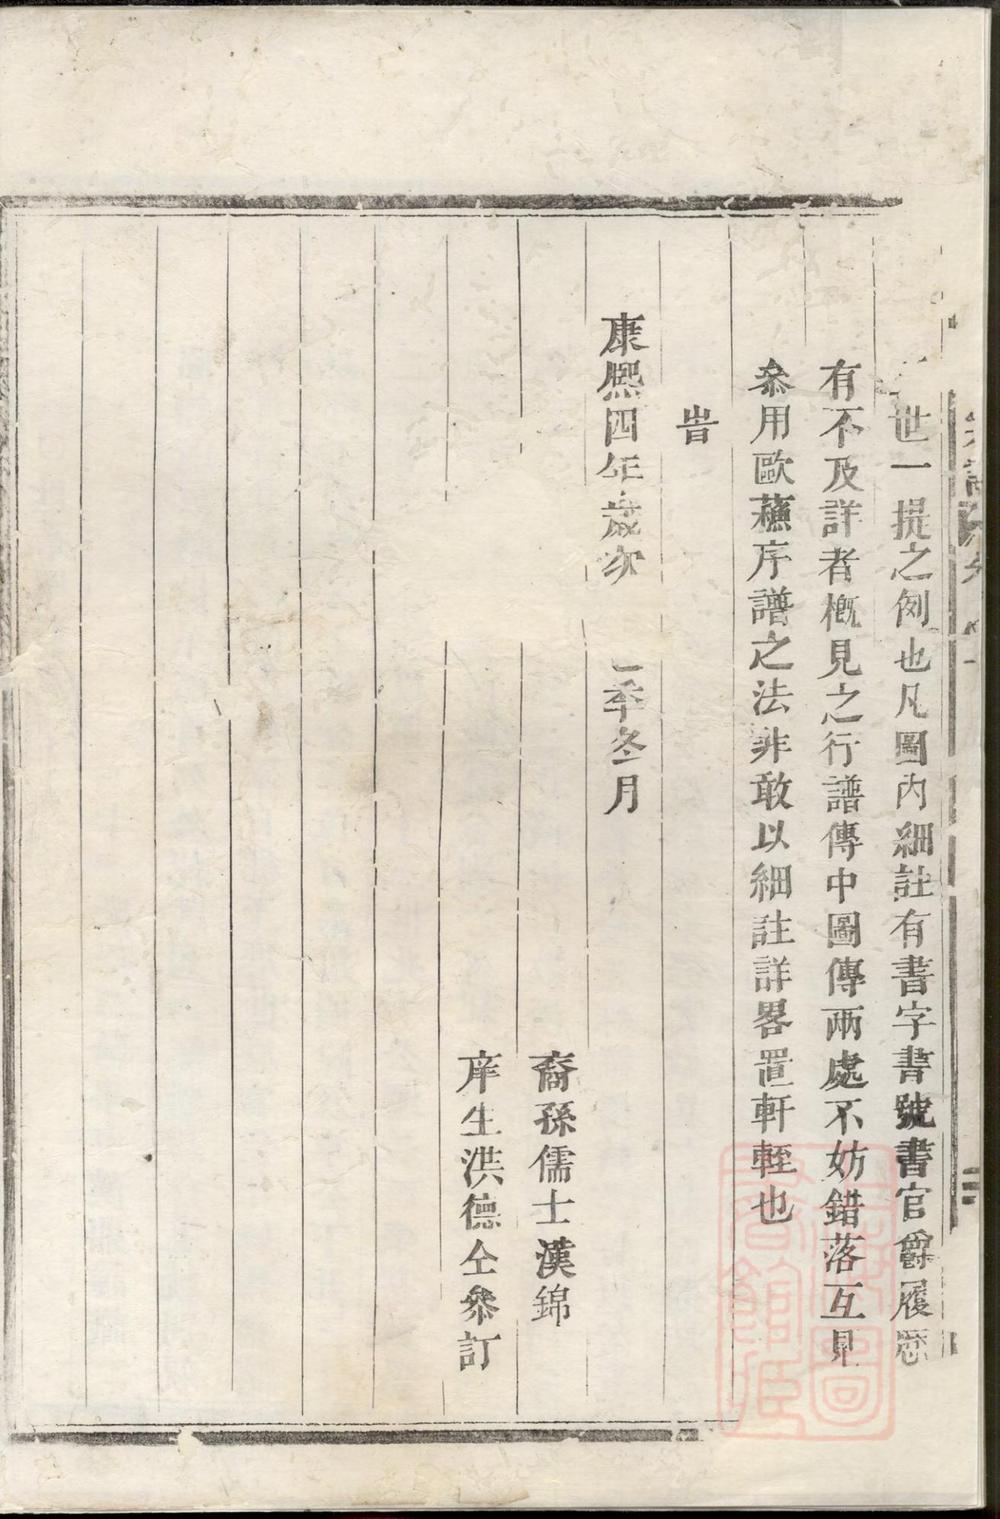 世一提之例也凡圖內細註有書字書號書官爵履歷
有不及詳者槪見之行譜傳中圖傳兩處不妨錯落互見
叅用歐蘓序譜之法非敢以細註詳畧置軒輊也
旹
康熙四年歲次
季冬月
裔孫儒士漢錦
庠生洪德仝叅訂